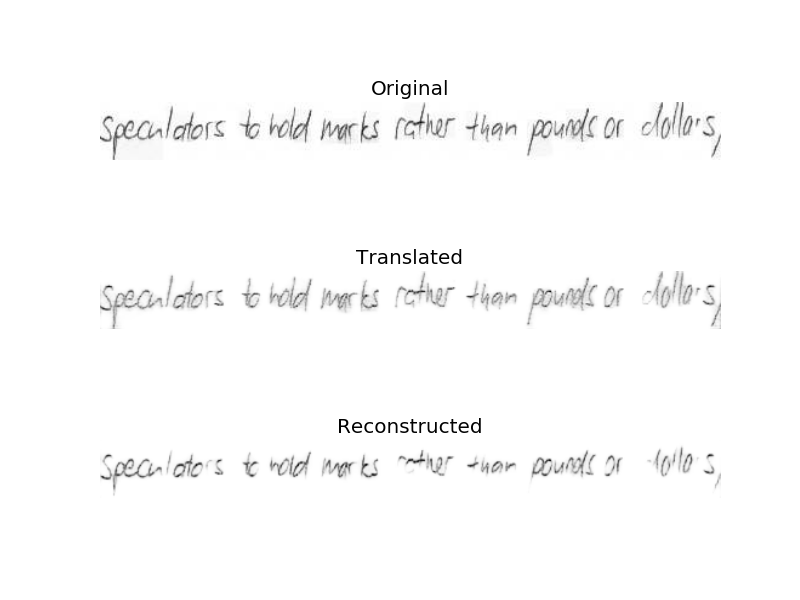 Original
Speculators to hold marks rather than pounds or dollars,
Translated
Speculators to hold marks rather than pounds or dollars,
Reconstructed
Speculators to hold marks rather than pounds or dollars,